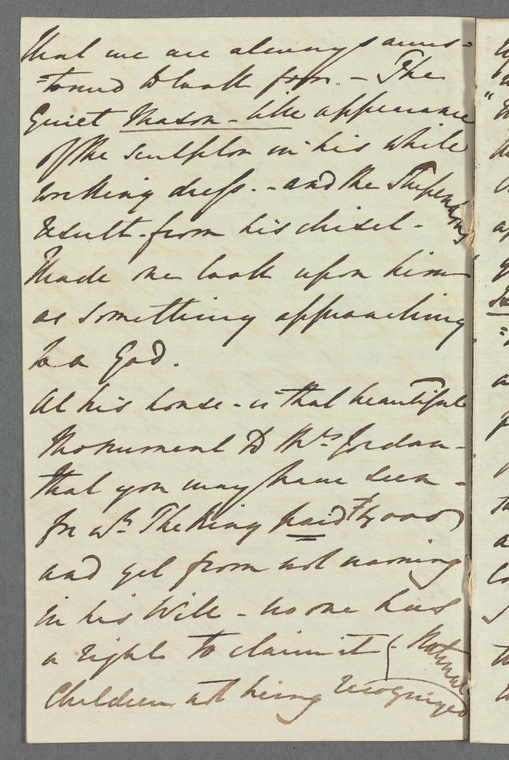 that we are always accus=
=tomed to look for. - The
Quiet Mason-like appearance
of the sculptor in his white
working dress. - and the stupendous
result from his chisel -
Made me look upon him
as something approaching
to a God.
At his house - is that beautiful
Monument to Mrs. Jordan -
that you may have seen -
for wh. The King paid
and yet from not naming
in his Will - no one has
a right to claim it (Natural
Children not being recognized